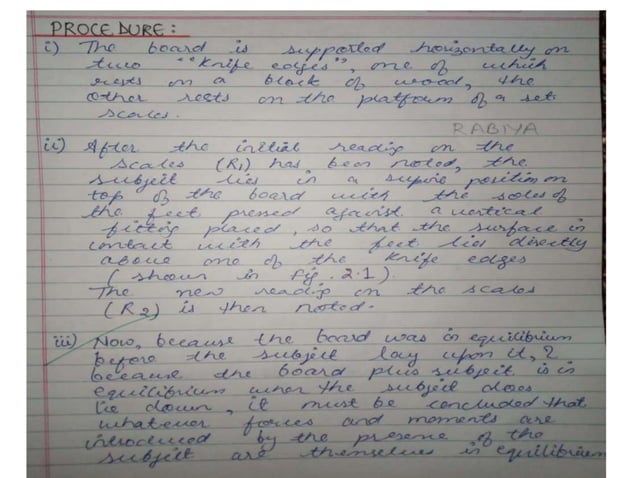 PROCEDURE:
i) The board is supported horizontally on
two "knife edges", one of which
rests on a block of wood, the
other rests on the platform of a set
scales.
RABIYA
ii) After the initial reading on the
scales (R1) has been noted, the
subject lies in a supine position on
top of the board with the soles of
the feet pressed against a vertical
fitting placed, so that the surface in
contact with the feet lies directly
above one of the knife edges
(shown in fig. 2.1).
The new reading on the scales
(R2) is then noted.
iii) Now, because the board was in equilibrium
before the subject lay upon it, &
because the board plus subject is in
equilibrium when the subject does
lie down, it must be concluded that
whatever forces and moments are
introduced by the presence of the
subject are themselves in equilibrium